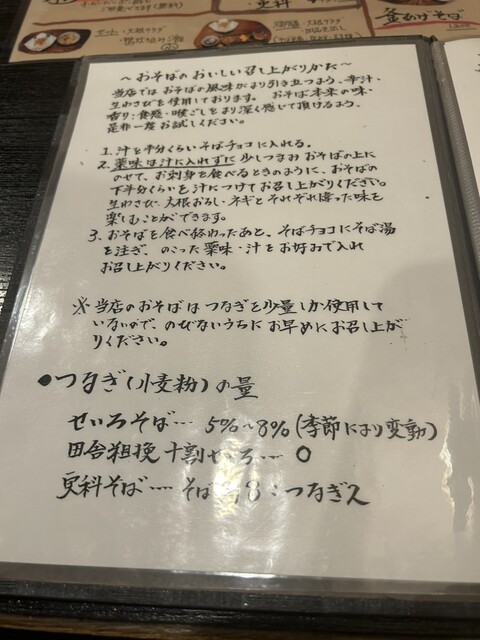 釜あげそば
～おそばのおいしい召し上がりかた～
当店ではおそばの風味がより引き立つよう、辛汁、
生わさびを使用しております。 おそば本来の味・
香り・食感・喉ごしをより深く感じて頂けるよう、
是非一度お試しください。
1. 汁を半分くらいそばチョコに入れる。
2. 薬味は汁に入れずに少しつまみおそばの上に
のせて、お刺身を食べるときのように、おそばの
下半分くらいを汁につけてお召し上がりください。
生わさび、大根おろし・ネギとそれぞれ違った味を
楽しむことができます。
3. おそばを食べ終わったあと、そばチョコにそば湯
を注ぎ、のこった薬味・汁をお好みで入れ
お召し上がりください。
※当店のおそばはつなぎを少量しか使用して
いないので、のびないうちにお早めにお召し上が
りください。
●つなぎ(小麦粉)の量
せいろそば… 5%~8%(季節により変動)
田舎粗挽十割せいろ… 0
更科そば…… そば 8:つなぎ2